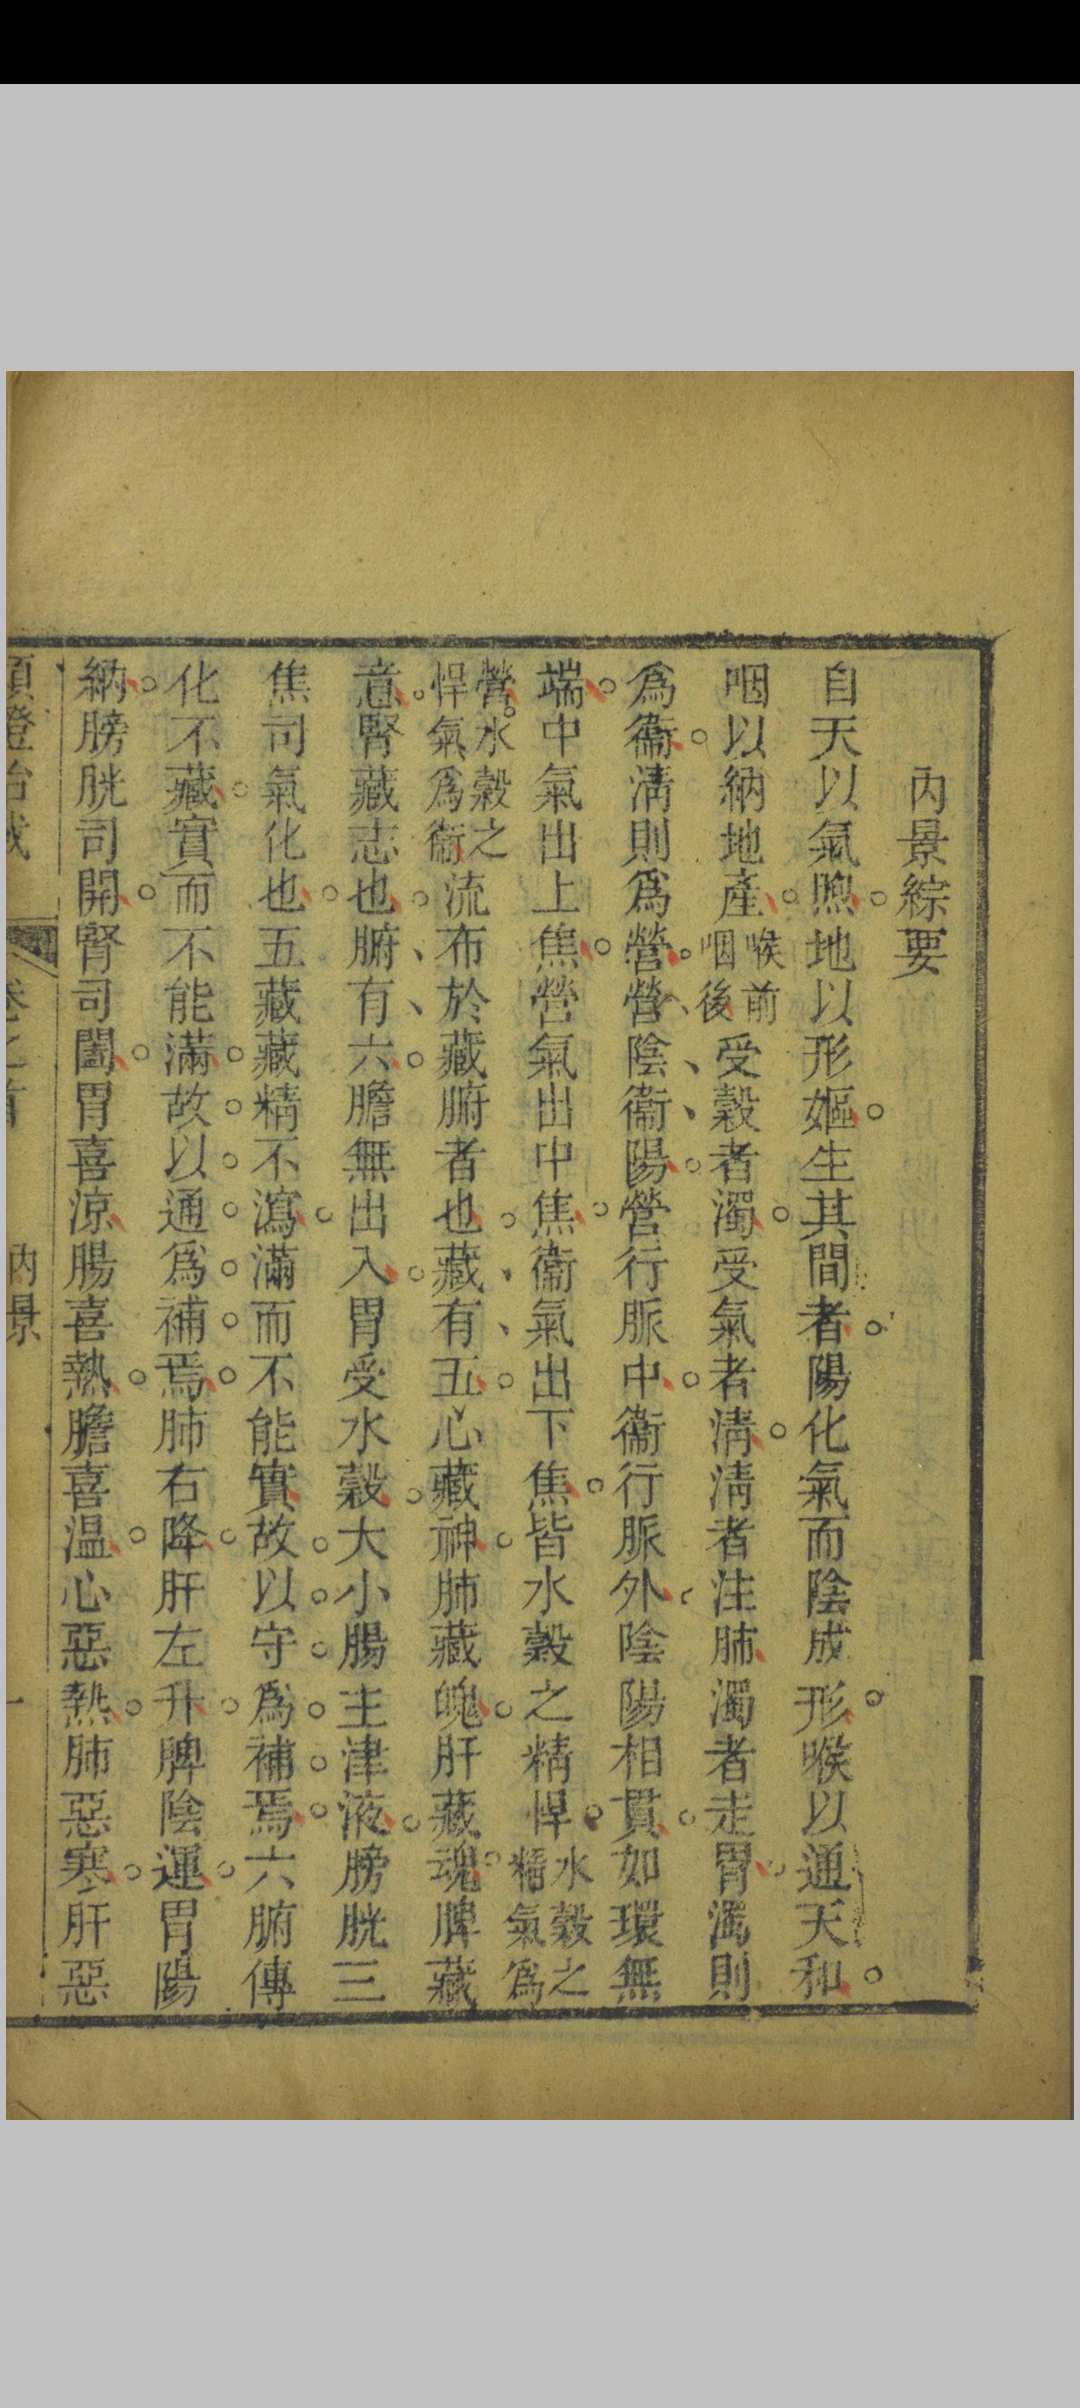 內景綜要
自天以氣煦地以形嫗生其間者陽化氣而陰成形喉以通天和
咽以納地產喉前咽後受穀者濁受氣者清清者注肺濁者走胃濁則
爲衞清則爲營營陰衞陽營行脈中衞行脈外陰陽相貫如環無
端中氣出上焦營氣出中焦衞氣出下焦皆水穀之精悍水穀之精氣爲
營水穀之悍氣爲衞流布於藏腑者也藏有五心藏神肺藏魄肝藏魂脾藏
意腎藏志也腑有六膽無出入胃受水穀大小腸主津液膀胱三
焦司氣化也五藏藏精不瀉滿而不能實故以守爲補焉六腑傳
化不藏實而不能滿故以通爲補焉肺右降肝左升脾陰運胃陽
納膀胱司開腎司闔胃喜涼腸喜熱膽喜温心惡熱肺惡寒肝惡
類證治裁 卷之首 內景 一